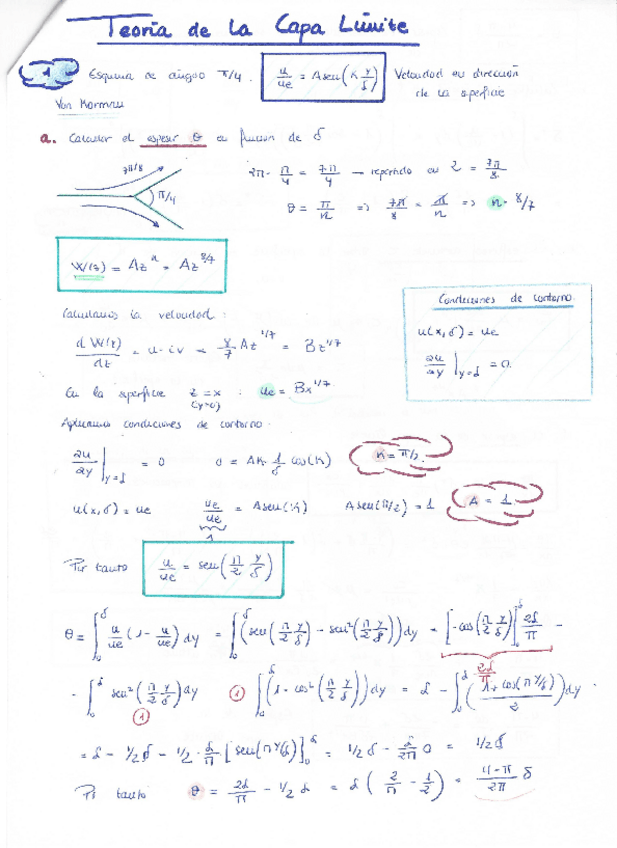 Teoría de la Capa Límite
1 Esquina de ángulo π/4. u/ue = A sen(K y/δ) Velocidad en dirección
de la superficie
Von Karman
a. Calcular el espesor θ en función de δ
7π/8 π/4
2π - π/4 = 7π/4 — repartido en 2 = 7π/8
θ = π/n => 7π/8 = π/n => n = 8/7
W(z) = Az^n = Az^8/7
Calculamos la velocidad:
dW(z)/dz = u - iv = 8/7 Az^1/7 = Bz^1/7
En la superficie z = x (y=0) : ue = Bx^1/7
Condiciones de contorno
u(x,δ) = ue
∂u/∂y |y=δ = 0
Aplicamos condiciones de contorno:
∂u/∂y |y=δ = 0 0 = AK·1/δ cos(K) K = π/2
u(x,δ) = ue ue/ue = A sen(K) A sen(π/2) = 1 A = 1
1
Por tanto u/ue = sen(π/2 y/δ)
θ = ∫₀^δ u/ue (1 - u/ue) dy = ∫₀^δ (sen(π/2 y/δ) - sen²(π/2 y/δ)) dy = [-cos(π/2 y/δ)]₀^δ 2δ/π -
2δ/π
- ∫₀^δ sen²(π/2 y/δ) dy ① ∫₀^δ (1 - cos²(π/2 y/δ)) dy = δ - ∫₀^δ (1 + cos(π y/δ)/2) dy
①
= δ - 1/2 δ - 1/2 · δ/π [sen(π y/δ)]₀^δ = 1/2 δ - δ/2π 0 = 1/2 δ
Por tanto θ = 2δ/π - 1/2 δ = δ (2/π - 1/2) = 4-π/2π δ